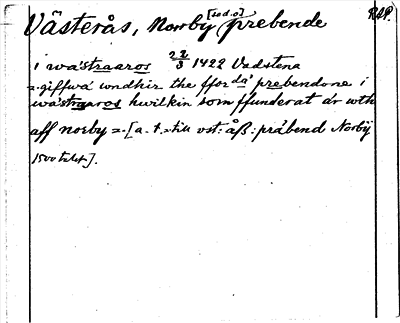 Västerås, Norrby [sed.o.] prebende RAP.
i wastraaros 22/3 1422 Vadstena
=giffwa wndhir the fforda prebendone i
wastraaros hwilkin som ffunderat är wth
aff norby = [a. t. till vst: åß: präbend Norbÿ
1500 talet].